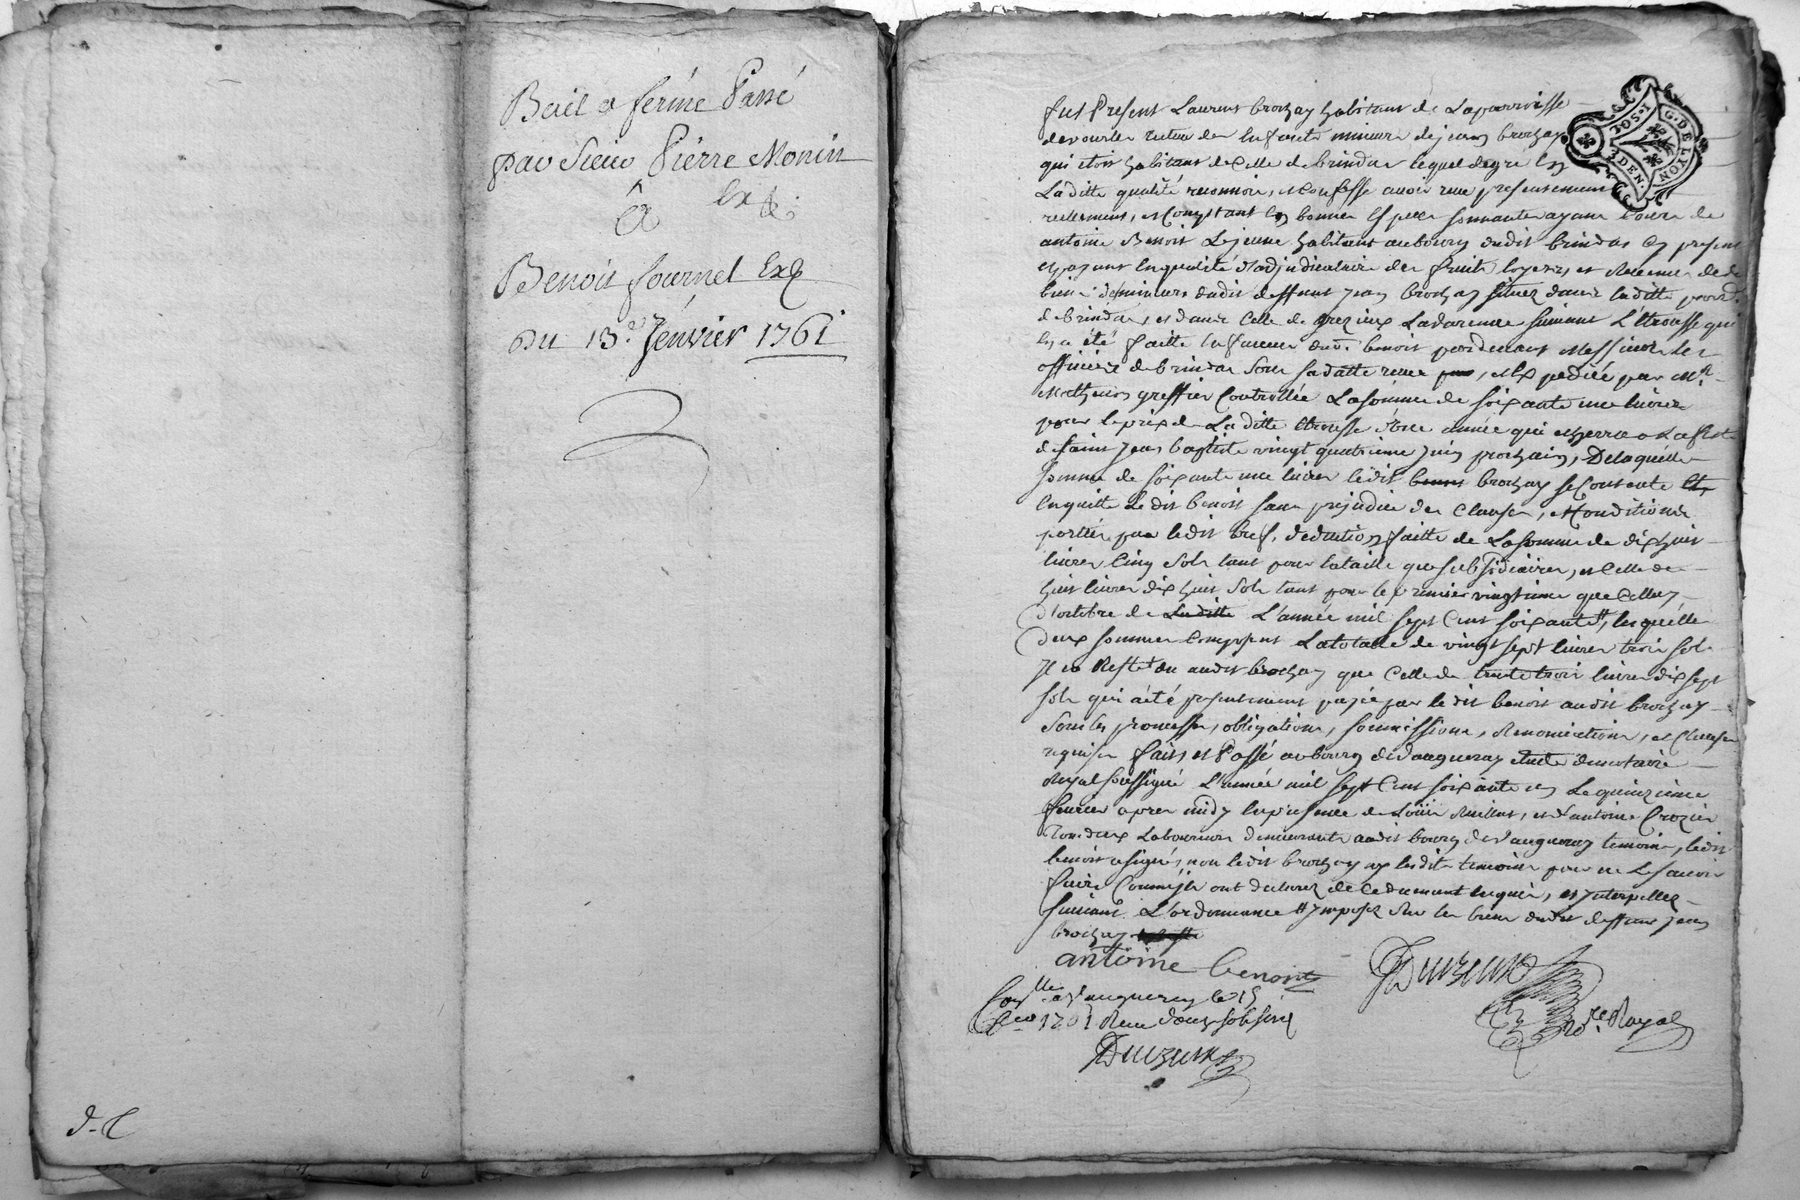 Bail a ferme Passé
par Sieur Pierre Monin
Exp.
à
Benoit fournel Exp
Du 13.e Jenvier 1761
d.C
G. DE LYON
2 SOLS
DEN.
fut Present Laurent brochay habitant de La parroisse
de tuteur des Enfants mineurs de jean brochay
qui etoit habitant de Celle de brindas lequel de gré En
Laditte qualité reconnoit, et Confesse avoir reçu presentement
reelement, et Comptant En bonnes Especes sonnantes ayant Cours de
antoine Benoit Lejeune habitant au bourg dudit brindas Cy present
Enqualité d'adjudicataire des fruits loyers, et Revenus de
biens desmineurs dudit deffunt jean brochay situez dans laditte parr.
de brindas, et dans Celle de Grezieux Lavarenne suivant L'Etrousse qui
En a été faitte Enfaveur dud. benoit pardevant Messieurs les
officiers de brindas Sous sa datte , et Expediée par Mr.
greffier Controllée La somme de soixante une livres
pour le prix de La ditte Etrousse d'une année qui Echerra a La feste
de saint jean baptiste vingt quatrieme juin prochain, De laquelle
somme de soixante une livres ledit brochay se Contente Et
Enquitte Le dit benoit sans prejudice des Clauses, et Conditions
portées par ledit bref, deduction faitte de La somme de dix huit
livres Cinq sols tant pour la taille que subsidiaires, et Celle de
huit livres dix huit sols tant pour le premier vingtieme que Celluy
d'octobre de Laditte L'année mil sept Cent soixante #, lesquelle
deux sommes Composent La totalle de vingt sept livres trois sols
Il ne Reste du audit brochay que Celle de trente trois livres dix sept
sols qui a eté presentement payée par le dit benoit audit brochay
Sous les promesses, obligations, soumissions, Renonciations, et Clauses
requises fait, et Passé au bourg de Vaugneray Etude du notaire
Royal soussigné L'année mil sept Cent soixante un Le quinzieme
fevrier apres midy En presence de Loüis , et d'antoine Crozier
Tous deux Laboureurs demeurants audit bourg de Vaugneray temoins, ledit
benoit a signé, non ledit brochay ny lesdits temoins pour ne Le savoir
faire Comme ils ont declarez de Ce dument Enquis, et Interpellez
suivant L'ordonnance # Imposez Sur les biens dudit deffunt jean
brochay
antoine benoit
Con.lle a Vaugneray le 15
feuv. 1761 Reçu douze sols six d
No.re Royal